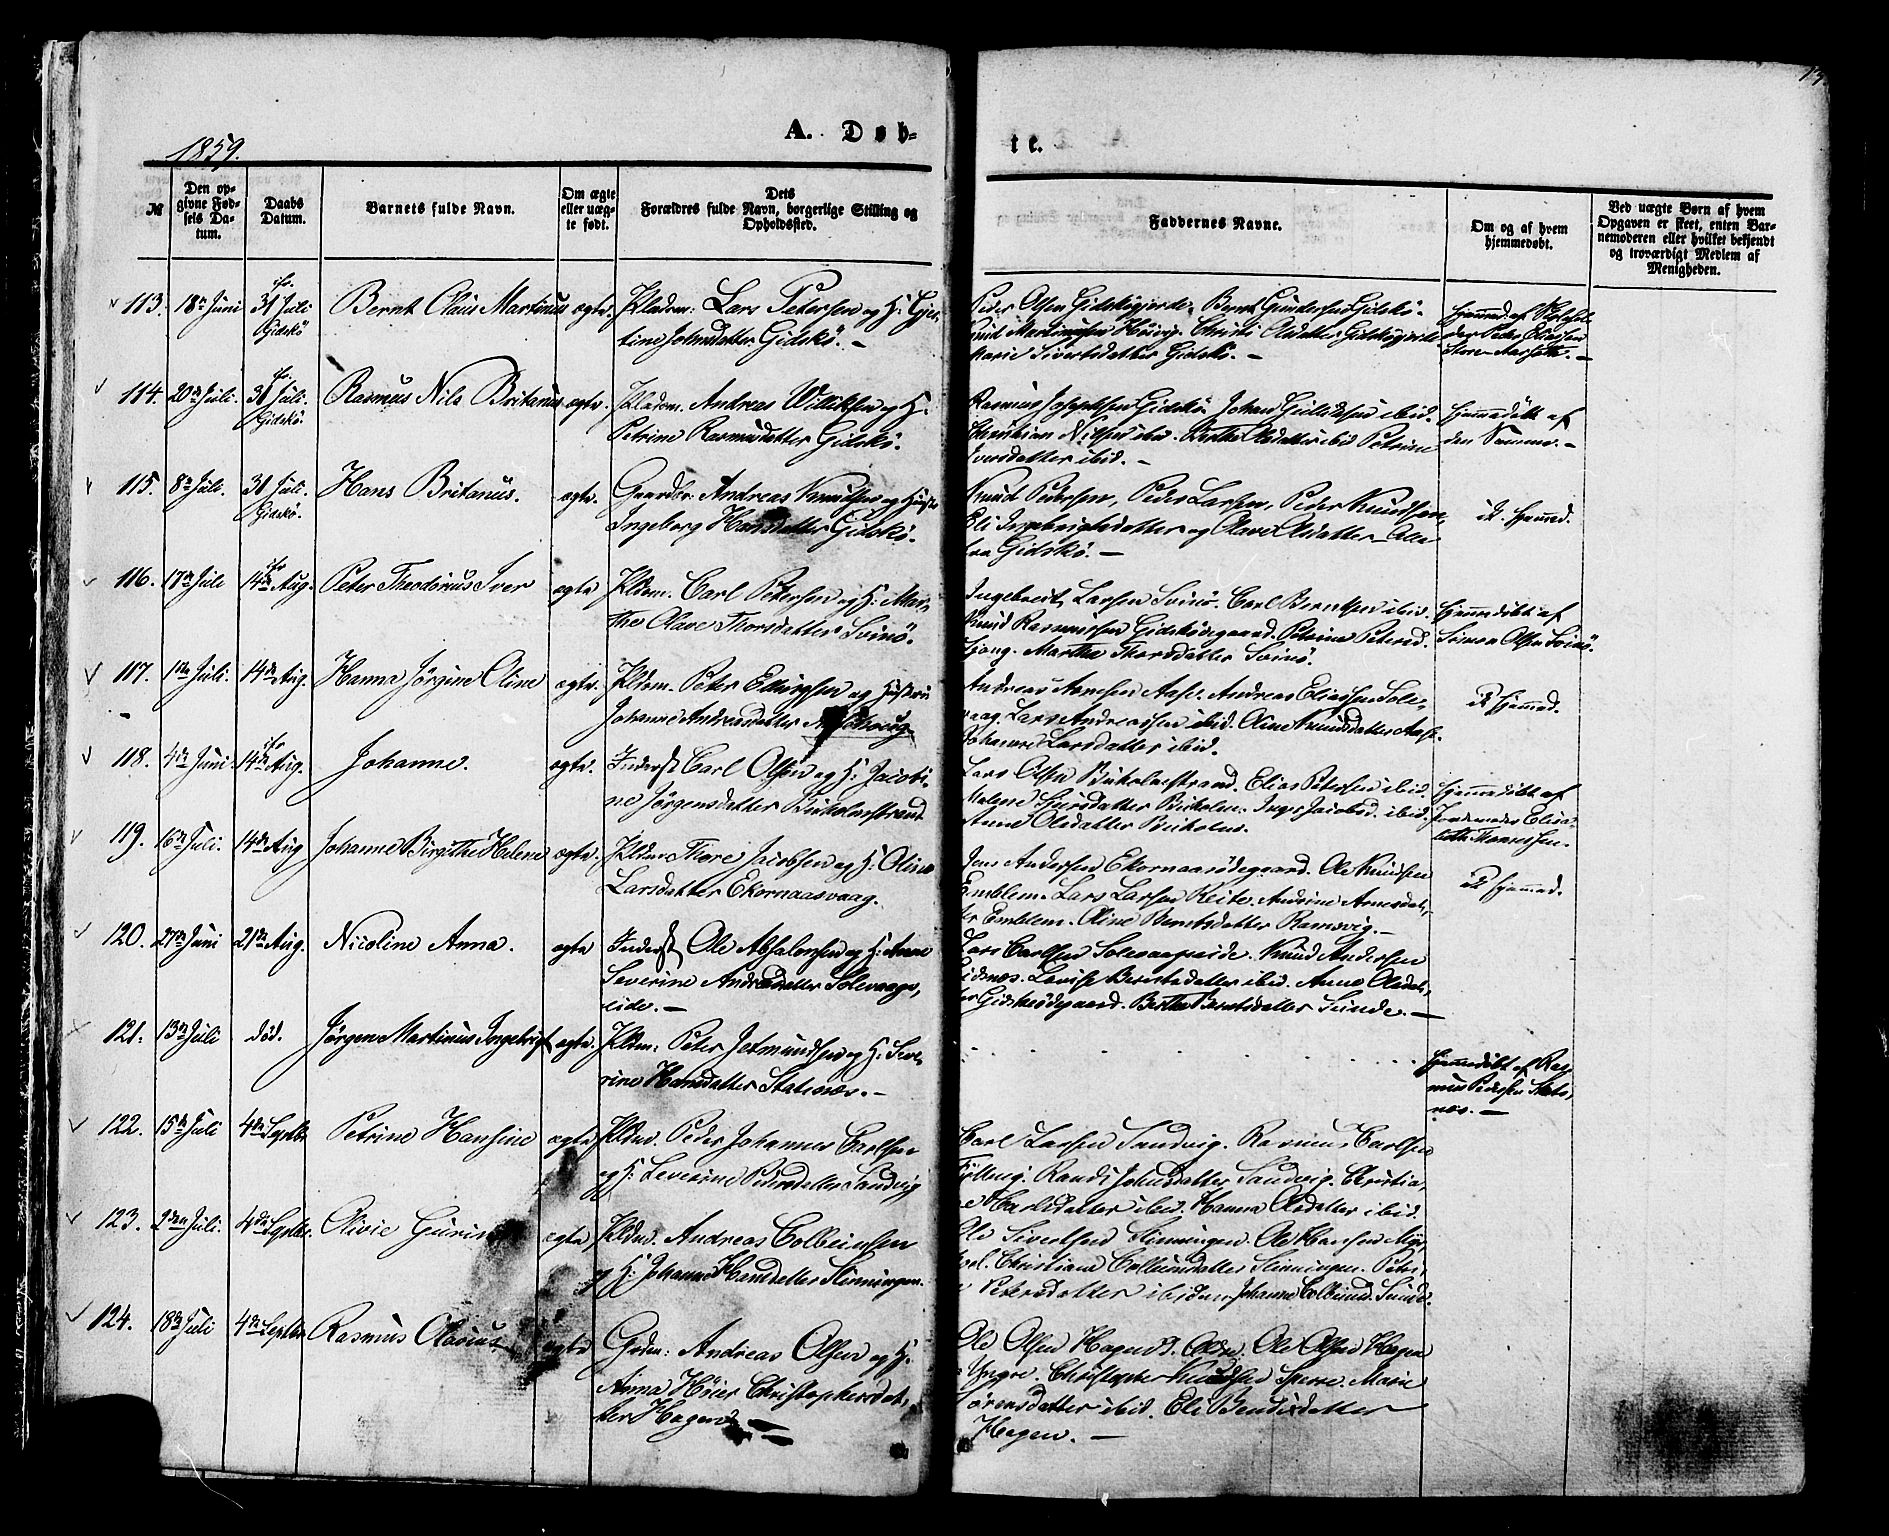 13
1859.
A. Døb-
te.
№
Den op-
givne Fød-
sels Da-
tum.
Daabs
Datum.
Barnets fulde Navn.
Om ægte
eller uæg-
te født.
Dets
Forældres fulde Navn, borgerlige Stilling og
Opholdssted.
Faddernes Navne.
Om og af hvem
hjemmedøbt.
Ved uægte Børn af hvem
Opgaven er skeet, enten Bar-
nemoderen eller hvilket bekjendt
og troværdigt Medlem af
Menigheden.
113. 18de Juni 31 Juli Gidskö Bernt Olaus Martinus ægte. Pladsm: Lars Petersen og H: Gjer-
tine Johnsdatter Gidskö. —
Peder Olsen Gidskögjerde, Bernt Gundersen Gidskö.
Knud Martinussen Christi Olsdatter Gidskögjerde
Marie Sivertsdatter Gidskö. —
Hjemmed. af Skolehol-
der Peder Eliassen
114. 20de Juli. 31 Juli. Gidskö. Rasmus Nils Britanus ægte. Pladsm. Andreas Villiksen og H.
Petrine Rasmusdatter Gidskö.
Rasmus Josephsen Gidskö Johan ibid.
Christian Nilsen ibid. Berthe Olsdatter ibid Petrine
Iversdatter ibid. —
Hjemmedöbt af
den Samme. —
115. 8de Juli. 31 Juli. Gidskö. Hans Britanus. ægte. Gaardbr. Andreas Knudsen og Hustr.
Ingeborg Hansdatter Gidskö.
Knud Pedersen, Peder Larsen, Peder Knudsen,
Eli Ingebrigtsdatter og Olave Olsdatter Alle
fra Gidskö. —
ik. hjemmed.
116. 17de Juli 14de Aug. Peter Theodorus Iver ægte Pldsm. Carl Petersen og H: Mar-
the Olave Thorsdatter Svinö.
Ingebrigt Larsen Svinö. Carl Berntsen ibid.
Knud Rasmussen Gidsködegaard. Petrine Petersd.
Martha Thorsdatter Svinö.
Hjemmedöbt af
Simon Olsen Svinö.
117. 1ste Juli. 14de Aug. Hanna Jörgine Oline ægte. Pldsm. Peter Ellingsen og Hustru
Johanne Andreasdatter
Andreas Arnesen Aase. Andreas Eliassen Sole-
vaag. Lars Andreassen ibid. Oline Knudsdatter Aase.
Johanne Larsdatter ibid.
ik hjemmed.
118. 4de Juni 14de Aug. Johanne. ægte. Inderst Carl Olsen og H: Jacobi-
ne Jörgensdatter Buholmstrand
Lars Olsen Buholmstrand. Elias Petersen ibid.
Malene Buholm. Inger Jacobsd. ibid.
Anne Olsdatter Buholm.
Hjemmedöbt af
Jordemoder Elisa-
beth Thomassen.
119. 16de Juli. 14de Aug Johanne Birgithe Helene ægte. Pldsm Thore Jacobsen og H: Oline
Larsdatter Ekornaasvaag.
Jens Andersen Ekornaasödegaard. Ole Knudsen
Emblem. Lars Larsen Reite. Andrine Arnesdat-
ter Emblem. Oline Berntsdatter Ramsvig. —
ik hjemmed.
120. 27de Juni 21de Aug. Nicoline Anna. ægte Inderst Ole Absalonsen og H: Anne
Severine Andreasdatter Solevaags-
eide. —
Lars Carlsen Solevaagseide. Knud Andersen
Eidsnes. Lovise Berntsdatter ibid. Anne Olsdat-
ter Gidskeödegaard. Berthe Berntsdatter Sunde. —
121. 13de Juli död. Jörgen Martinus Ingebrigt ægte. Pldsm: Peter Jetmundsen og H: Seve-
rine Hansdatter Slatenæs. —
Hjemmedöbt af Ras-
mus Pedersen Slate-
næs. —
122. 15de Juli 4de Septbr Petrine Hansine ægte Pldsm. Peder Johannes Carlsen
og H: Severine Pedersdatter Sandvig
Carl Larsen Sandvig. Rasmus Carlsen
Randi Johnsdatter Sandvig. Christia-
ne Karlsdatter ibid. Hanna Olsdatter ibid.
123. 2den Juli. 4de Septbr. Olivie Gurine ægte Pldsm. Andreas Colbeinsen
og H: Johanne Hansdatter Slinningen.
Ole Sivertsen Slinningen. Ole Hansen Myr-
vol. Christiane Colbeinsdatter Slinningen. Petri-
ne Petersdatter ibidem Johanne Colbeinsd. Sunde.
124. 18de Juli 4de Septbr Rasmus Olavius ægte Grdm: Andreas Olsen og H.
Anna Höier Christophersdat-
ter Hagen —
Ole Olsen Hagen S. Ole Olsen Hagen
Yngre. Christopher Knudsen Sperre. Marie
Sörensdatter ibid. Eli Bendixdatter
Hagen. —